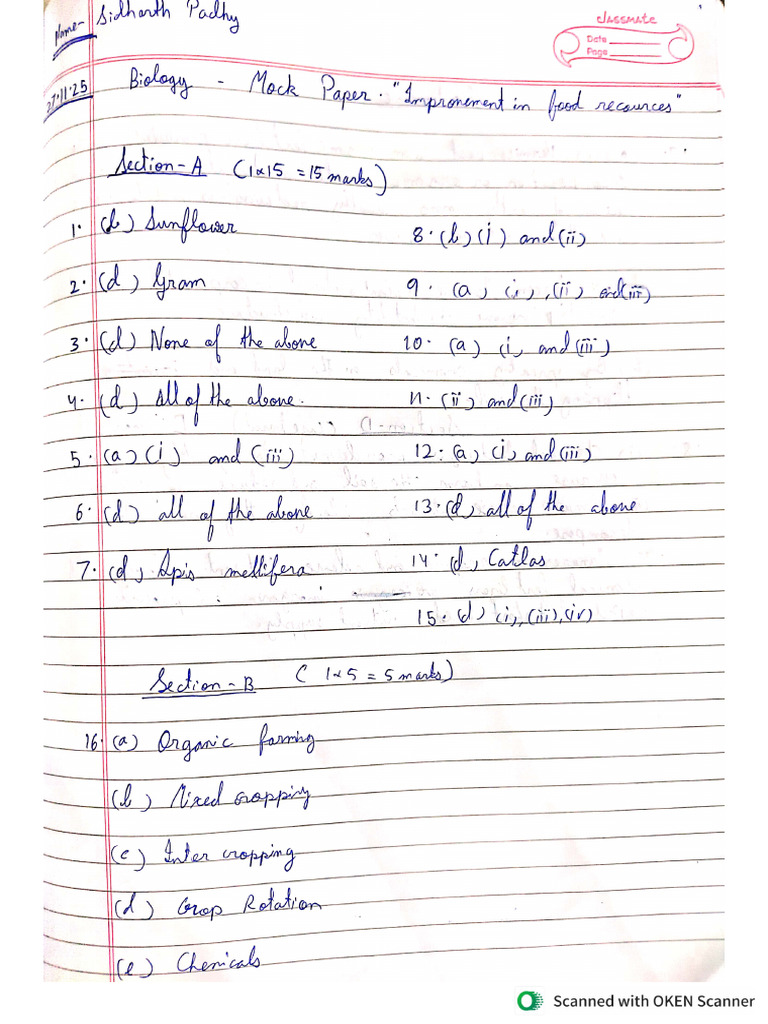 Name- Sidharth Padhy
classmate
Date
Page
27.11.25
Biology - Mock Paper. "Impronement in food recources"
Section-A (1x15 = 15 marks)
1. (b) Sunflower
2. (d) Gram
3. (d) None of the above
4. (d) All of the above.
5. (a) (i) and (iii)
6. (d) all of the above
7. (d) Apis mellifera
8. (b) (i) and (ii)
9. (a) (i), (ii) and (iii)
10. (a) (i) and (iii)
11. (ii) and (iii)
12. (a) (i) and (iii)
13. (d) all of the above
14. (d) Catlas
15. (d) (i), (iii), (iv)
Section-B (1x5 = 5 marks)
16. (a) Organic farming
(b) Mixed cropping
(c) Inter cropping
(d) Crop Rotation
(e) Chemicals
Scanned with OKEN Scanner